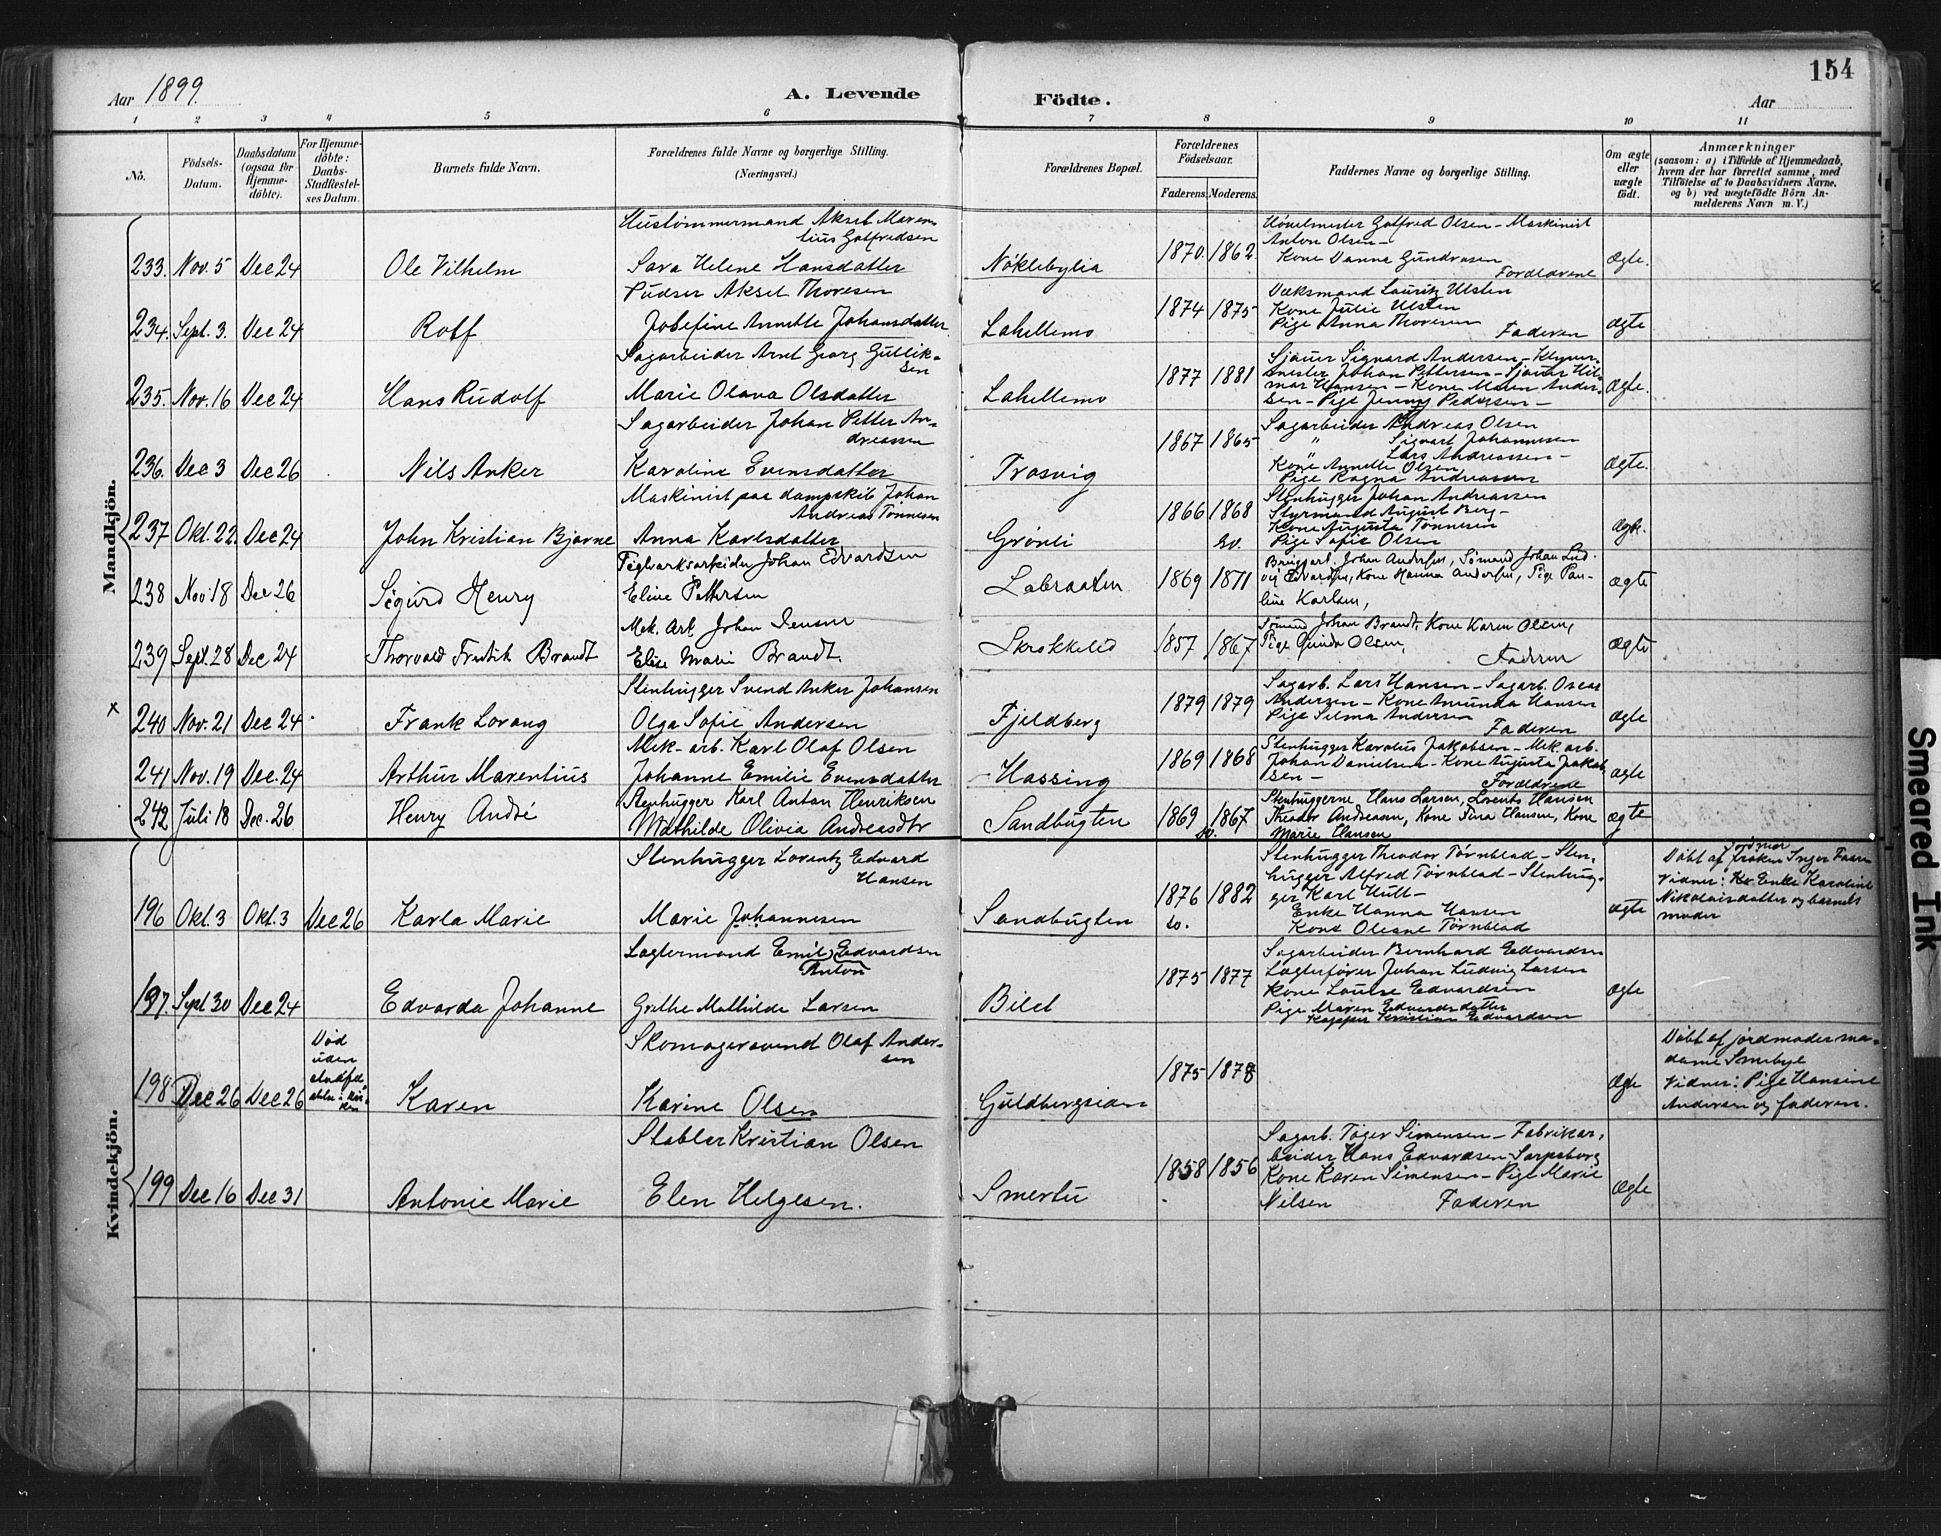 Aar 1899.
A. Levende Födte.
Aar
154
1 2 3 4 5 6 7 8 9 10 11
No.
Födsels-Datum.
Daabsdatum (ogsaa for Hjemme-döbte).
For Hjemme-döbte: Daabs-Stadfæstel-ses Datum.
Barnets fulde Navn.
Forældrenes fulde Navne og borgerlige Stilling.
(Næringsvei.)
Forældrenes Bopæl.
Forældrenes Födselsaar.
Faderens. Moderens.
Faddernes Navne og borgerlige Stilling.
Om ægte eller uægte födt.
Anmærkninger
(saasom: a) i Tilfælde af Hjemmedaab, hvem der har forrettet samme, med Tilföielse af to Daabsvidners Navne, og b) ved uægtefödte Börn An-melderens Navn m. V.)
Mandkjön.
233. Nov. 5 Dec 24 Ole Vilhelm
Hustømmermand Aksel Maren-
tius Gotfredsen
Sara Helene Hansdatter
Nøklebylia 1870. 1862
Anton Olsen -
Kone Danna Gundersen
Forældrene
Ægte.
234. Sept. 3. Dec 24 Rolf
Pudser Aksel Thoresen
Josefine Annette Johansdatter
Lahellemo 1874 1875
Væksmand Lauritz Ulsten
Kone Julie Ulsten
Pige Anna Thoresen
Faderen
Ægte
235. Nov. 16 Dec 24 Hans Rudolf
Sagarbeider Arnt Georg Gullik-
sen
Marie Olava Olsdatter
Lahellemo 1877 1881
Sjauer Sigvard Andersen -
mester Johan Pettersen - Sjauer Hil-
mar Hansen - Kone Maren Ander-
sen - Pige Jenny Pedersen -
Ægte.
236. Dec 3 Dec 26 Nils Anker
Sagarbeider Johan Petter An-
dreassen
Karoline Evensdatter
Trosvig 1867 1865
Sagarbeider Andreas Olsen
" Sigvart Johannesen
" Lars Andreassen -
Kone Annette Olsen
Pige Ragna Andreassen
Ægte.
237 Okt. 22. Dec 24 John Kristian Bjarne
Maskinist paa dampskib Johan
Andreas Tønnesen
Anna Karlsdatter
Grønli 1866 1868
Sv.
Stenhugger Johan Andreassen
Styrmand August Berg -
Kone Augusta Tønnesen
Pige Sofie Olsen
Ægte.
238 Nov. 18 Dec 26 Sigurd Henry
Teglverksarbeider Johan Edvardsen
Eline Pettersen
Labraaten 1869 1871
Bryggarb. Johan Andersen, Sømand Johan Lud-
vig Edvardsen, Kone Hanna Andersen, Pige Pau-
line Karlsen,
Ægte
239 Sept. 28 Dec 24 Thorvald Fredrik Brandt
Mek. Arb. Johan Jensen
Elise Marie Brandt.
Skrokkelid 1857 1867
Sømand Johan Brandt, Kone Karen Olsen,
Pige Gunda Olsen,
Faderen
Ægte
x
240 Nov. 21 Dec 24 Frank Lorang
Stenhugger Svend Anker Johansen
Olga Sofie Andersen
Fjeldberg 1879 1879
Sagarb. Lars Hansen - Sagarb. Oscar
Andersen - Kone Amunda Hansen
Pige Selma Andersen
Faderen
Ægte
241 Nov. 19 Dec. 24 Arthur Marentius
Mek-arb. Karl Olaf Olsen
Johanne Emilie Evensdatter
Hassing 1869 1868
Stenhugger Karolius Jakobsen - Mek. arb.
Johan Danielsen - Kone Augusta Jakob
sen -
Forældrene
Ægte
242 Juli 18 Dec. 26 Henry André
Stenhugger Karl Anton Henriksen
Mathilde Olivia Andreasdtr
Sandbugten 1869 1867
Sv.
Stenhuggerne Hans Larsen, Lorents Hansen
Theodor Andreasen, Kone Tina Hansen, Kone
Marie Hansen
Ægte
Kvindekjön.
196 Okt. 3 Okt. 3 Dec 26 Karla Marie
Stenhugger Lorentz Edvard
Hansen
Marie Johannesen
Sandbugten 1876 1882
Sv.
Stenhugger Theodor Törnblad - Sten,
hugger Alfred Törnblad - Stenhug-
ger Karl Hult -
Enke Hanna Hansen
Kone Olesne Törnblad
Ægte
Døbt af frøken Inger Faa
Vidner: Enke Karoline
Nikolaisdatter og barnets
moder
197. Sept 30 Dec 24 Edvarda Johanne
Lagtermand Emil Edvardsen
Anton
Grethe Mathilde Larsen
Bilet 1875 1877
Sagarbeider Bernhard Edvardsen
Lagterfører Johan Ludvig Larsen
Kone Louise Edvardsen
Pige Maren Edvardsdatter
Kristian Edvardsen
Ægte
198 Dec 26 Dec 26
Død
uden
stadfæ
Karen
Skomagersvend Olaf Ander-
sen
Karine Olsen
Guldbergsiden 1875 1878
Ægte
Døbt af jordmoder ma-
dame Smebye
Vidner: Pige Hansine
Andersen og faderen.
199 Dec 16 Dec 31 Antonie Marie
Stabler Kristian Olsen
Elen Helgesen.
Smertu 1858 1856
Sagarb. Töger Simensen - Fabrikar,
beider Hans Edvardsen - Sarpsborg
Kone Karen Simensen - Pige Marie
Nilsen Faderen
Ægte
Smeared Ink